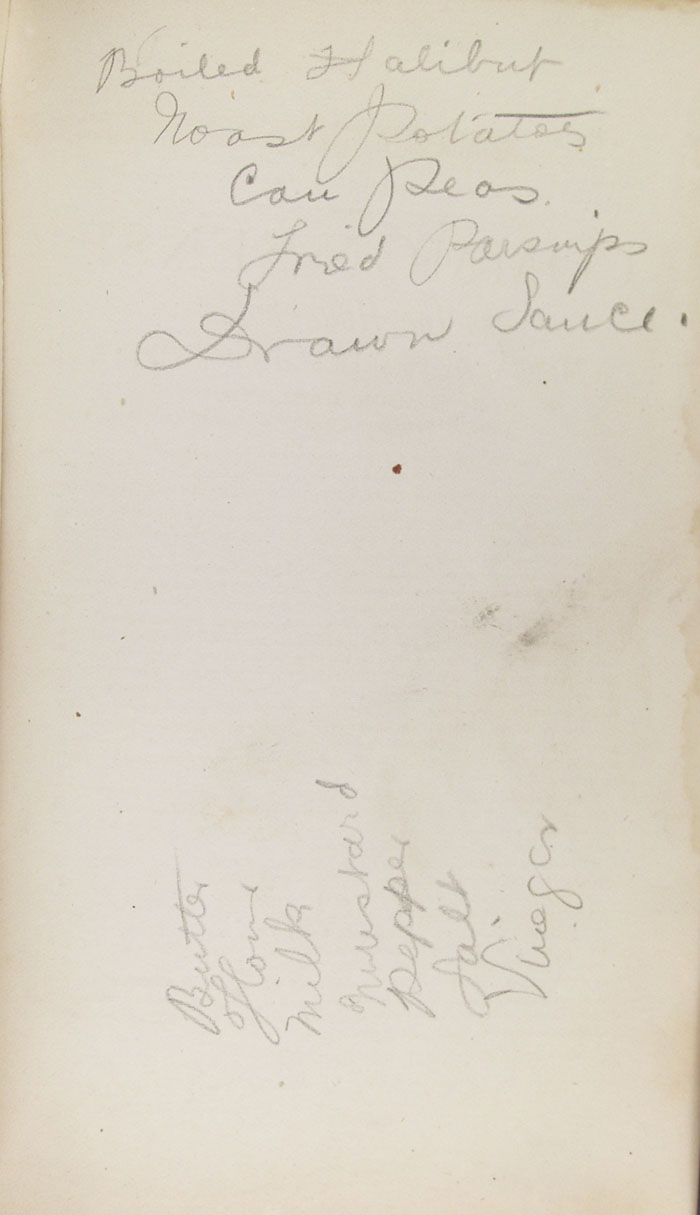 Boiled Halibut
Roast Potatoes
Can Peas.
Fried Parsnips
Drawn Sauce.
Butter
Flour
Milk
Mustard
Pepper
Salt
Vinegar